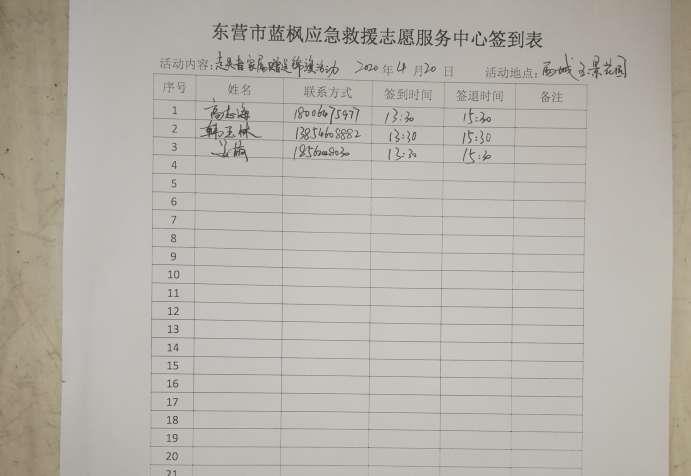 东营市蓝枫应急救援志愿服务中心签到表
活动内容:走失者家属赠送锦旗活动 2020年4月20日 活动地点:西城玉景花园
序号 姓名 联系方式 签到时间 签退时间 备注
1 高志海 18006475977 13:30 15:30
2 韩玉林 13854608882 13:30 15:30
3 13:30 15:30
4
5
6
7
8
9
10
11
12
13
14
15
16
17
18
19
20
21